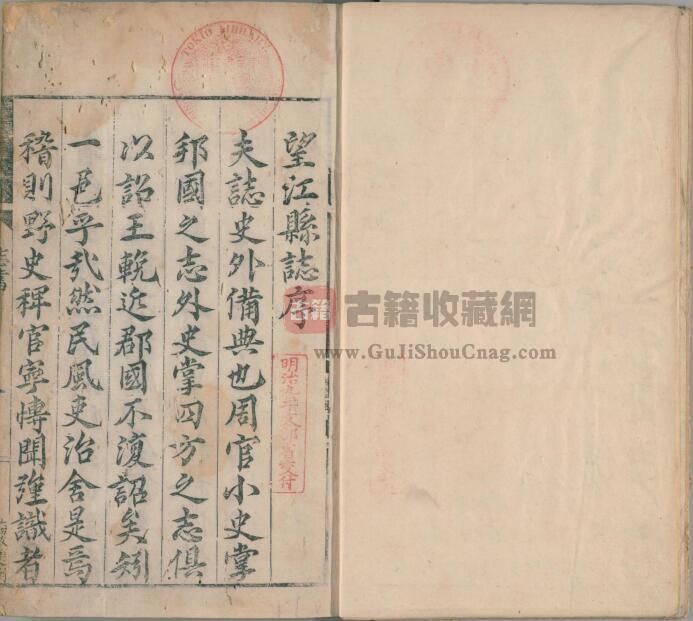 望江縣誌序
夫誌史外備典也周官小史掌
邦國之志外史掌四方之志俱
以詔王輓近郡國不復詔矣矧
一邑乎哉然民風吏治舍是焉
稽則野史稗官寧慱聞殫識者
TOKIO LIBRARY
明治九年文部省交付
古籍
古籍收藏網
www.GuJiShouCnag.com